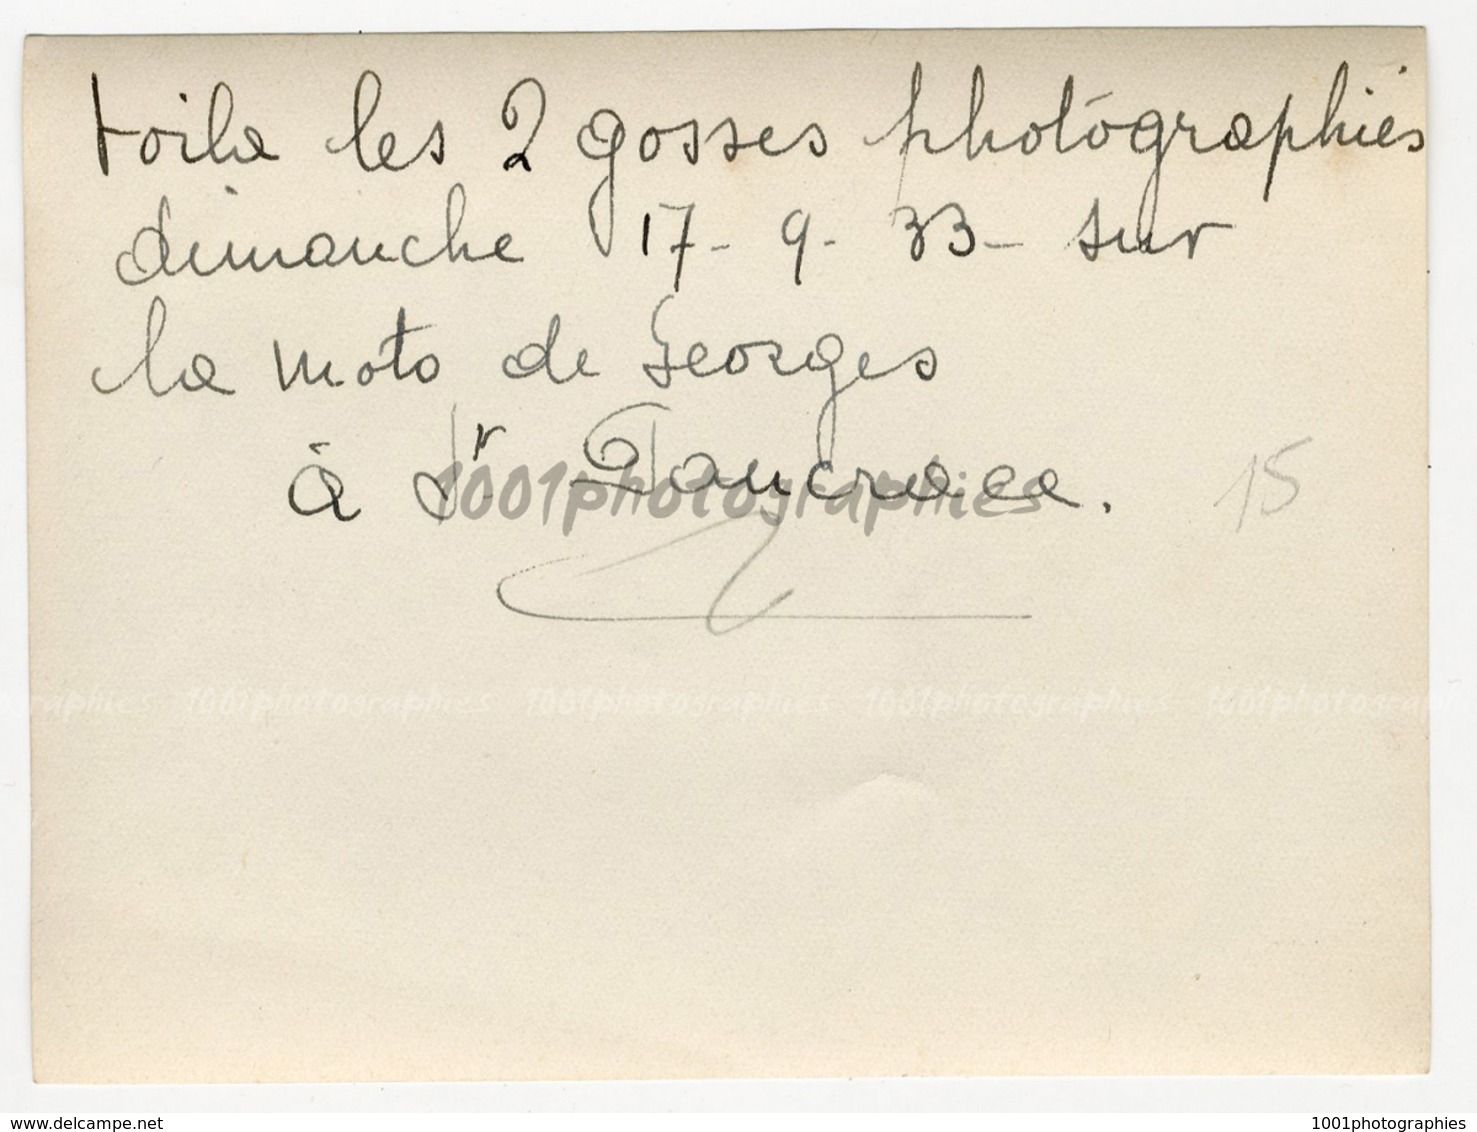 voila les 2 gosses photographiés
dimanche 17-9-33- sur
la moto de Georges
à St Pancrace.
15
1001photographies
ographies 1001photographies 1001photographies 1001photographies 1001photographi
www.delcampe.net 1001photographies